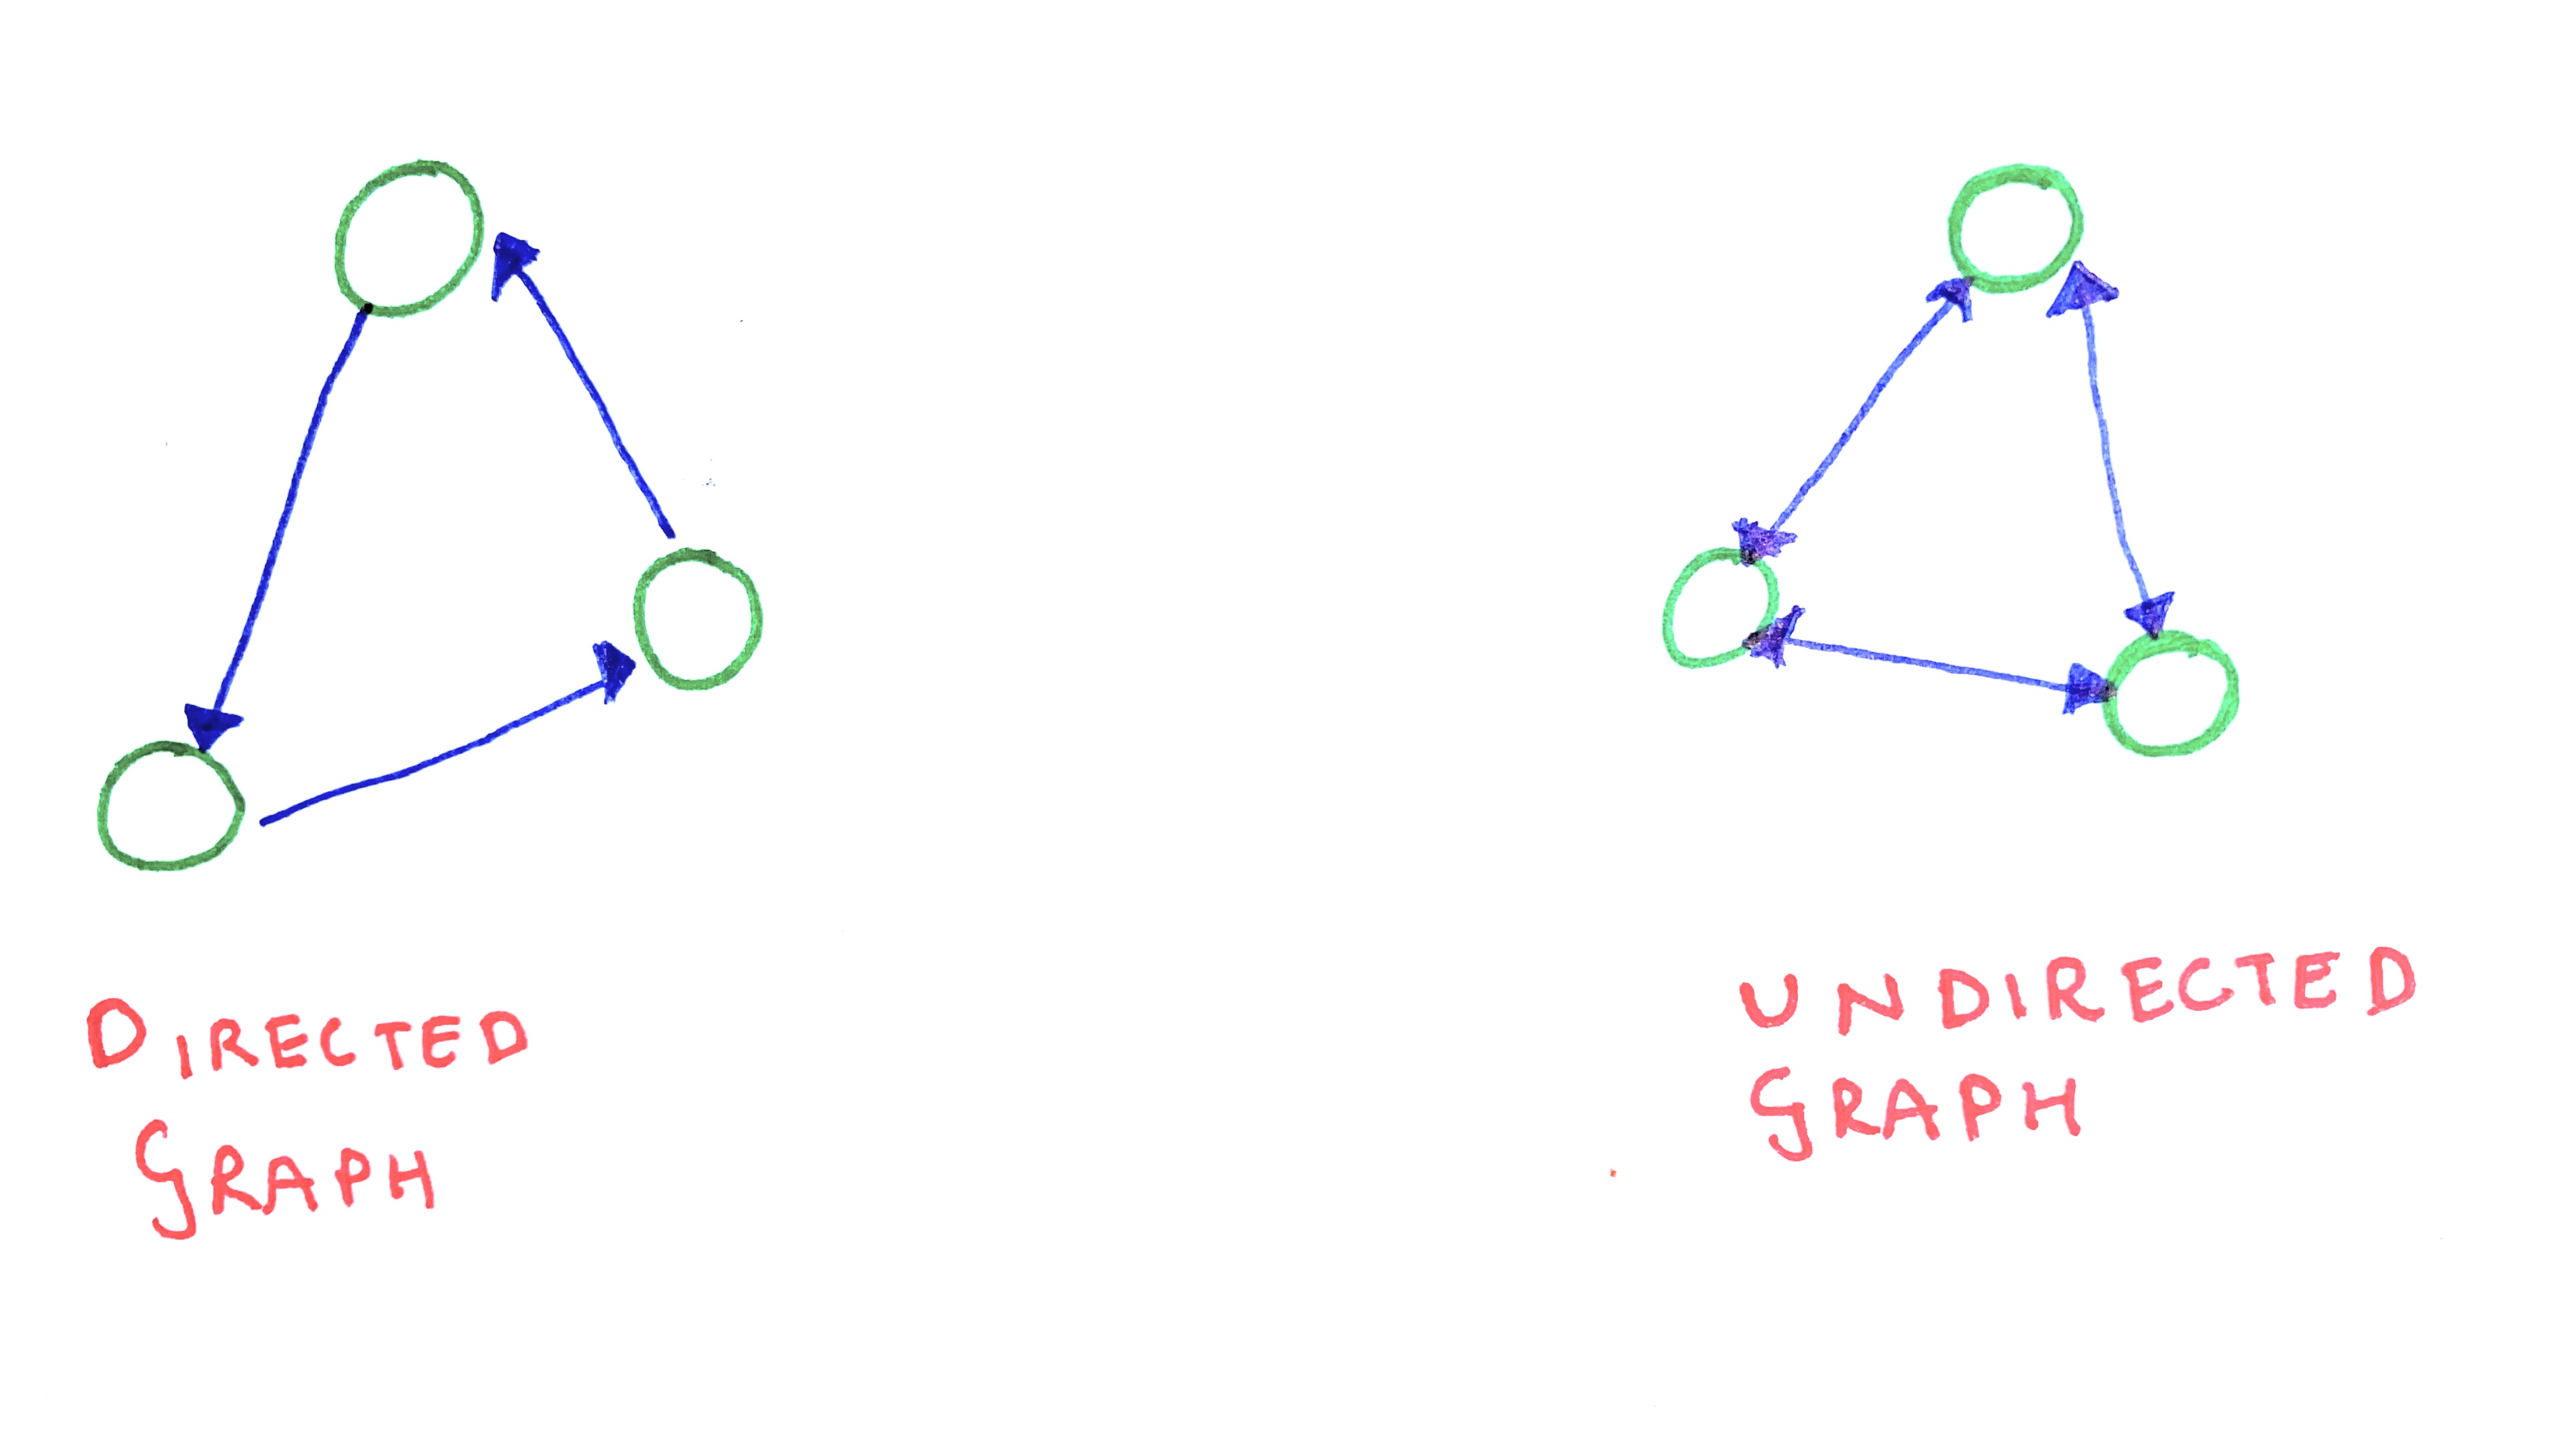 DIRECTED
GRAPH
UNDIRECTED
GRAPH